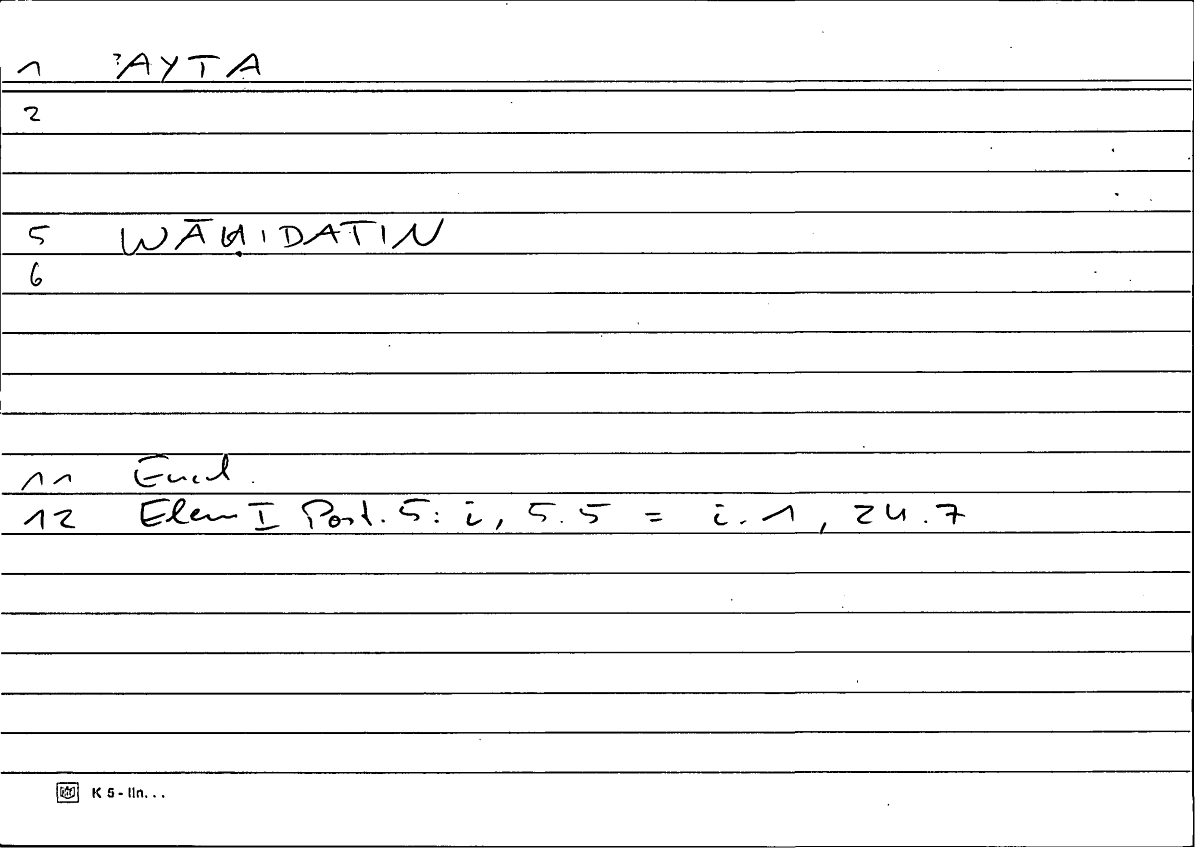 1 ʾAYTA
2
5 WĀḤIDATIN
6
11 Eucl.
12 Elem I Post. 5: i, 5.5 = i. 1, 24.7
K 5 - lin...